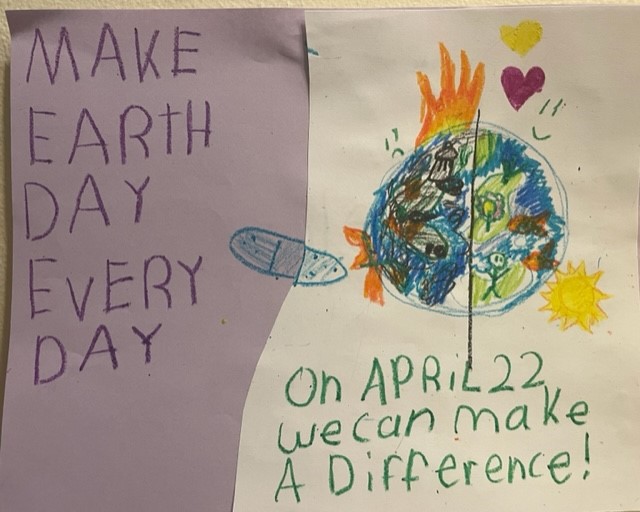 MAKE
EARtH
DAY
EVERY
DAY
On APRiL 22
we can make
A Difference!